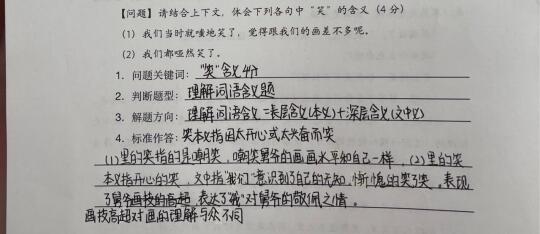 【问题】请结合上下文，体会下列各句中“笑”的含义（4 分）
（1）我们当时就嗤地笑了，觉得跟我们的画差不多呢。
（2）我们都哑然笑了。
1. 问题关键词：“笑”含义 4分
2. 判断题型：理解词语含义题
3. 解题方向：理解词语含义=表层含义(本义)+深层含义(文中义)
4. 标准作答：笑本义指因太开心或太兴奋而笑
(1)里的笑指的是嘲笑，嘲笑舅爷的画画水平和自己一样，(2)里的笑
本义指开心的笑，文中指“我们”意识到了自己的无知，惭愧的笑了笑，表现
了舅爷画技的高超，表达了“我”对舅爷的敬佩之情。
画技高超对画的理解与众不同